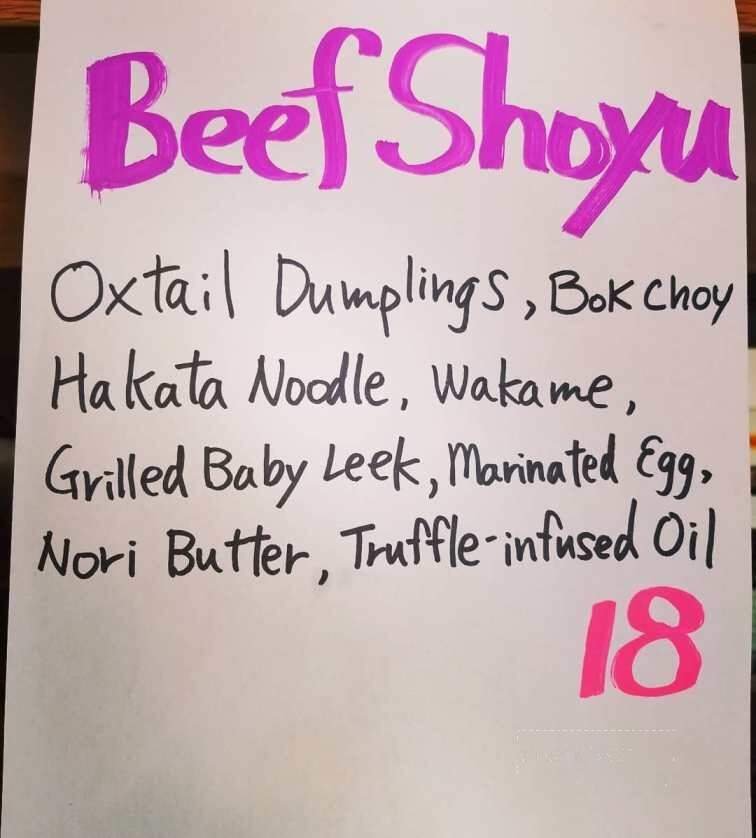 Beef Shoyu
Oxtail Dumplings, Bok Choy
Hakata Noodle, Wakame,
Grilled Baby Leek, Marinated Egg,
Nori Butter, Truffle-infused Oil
18